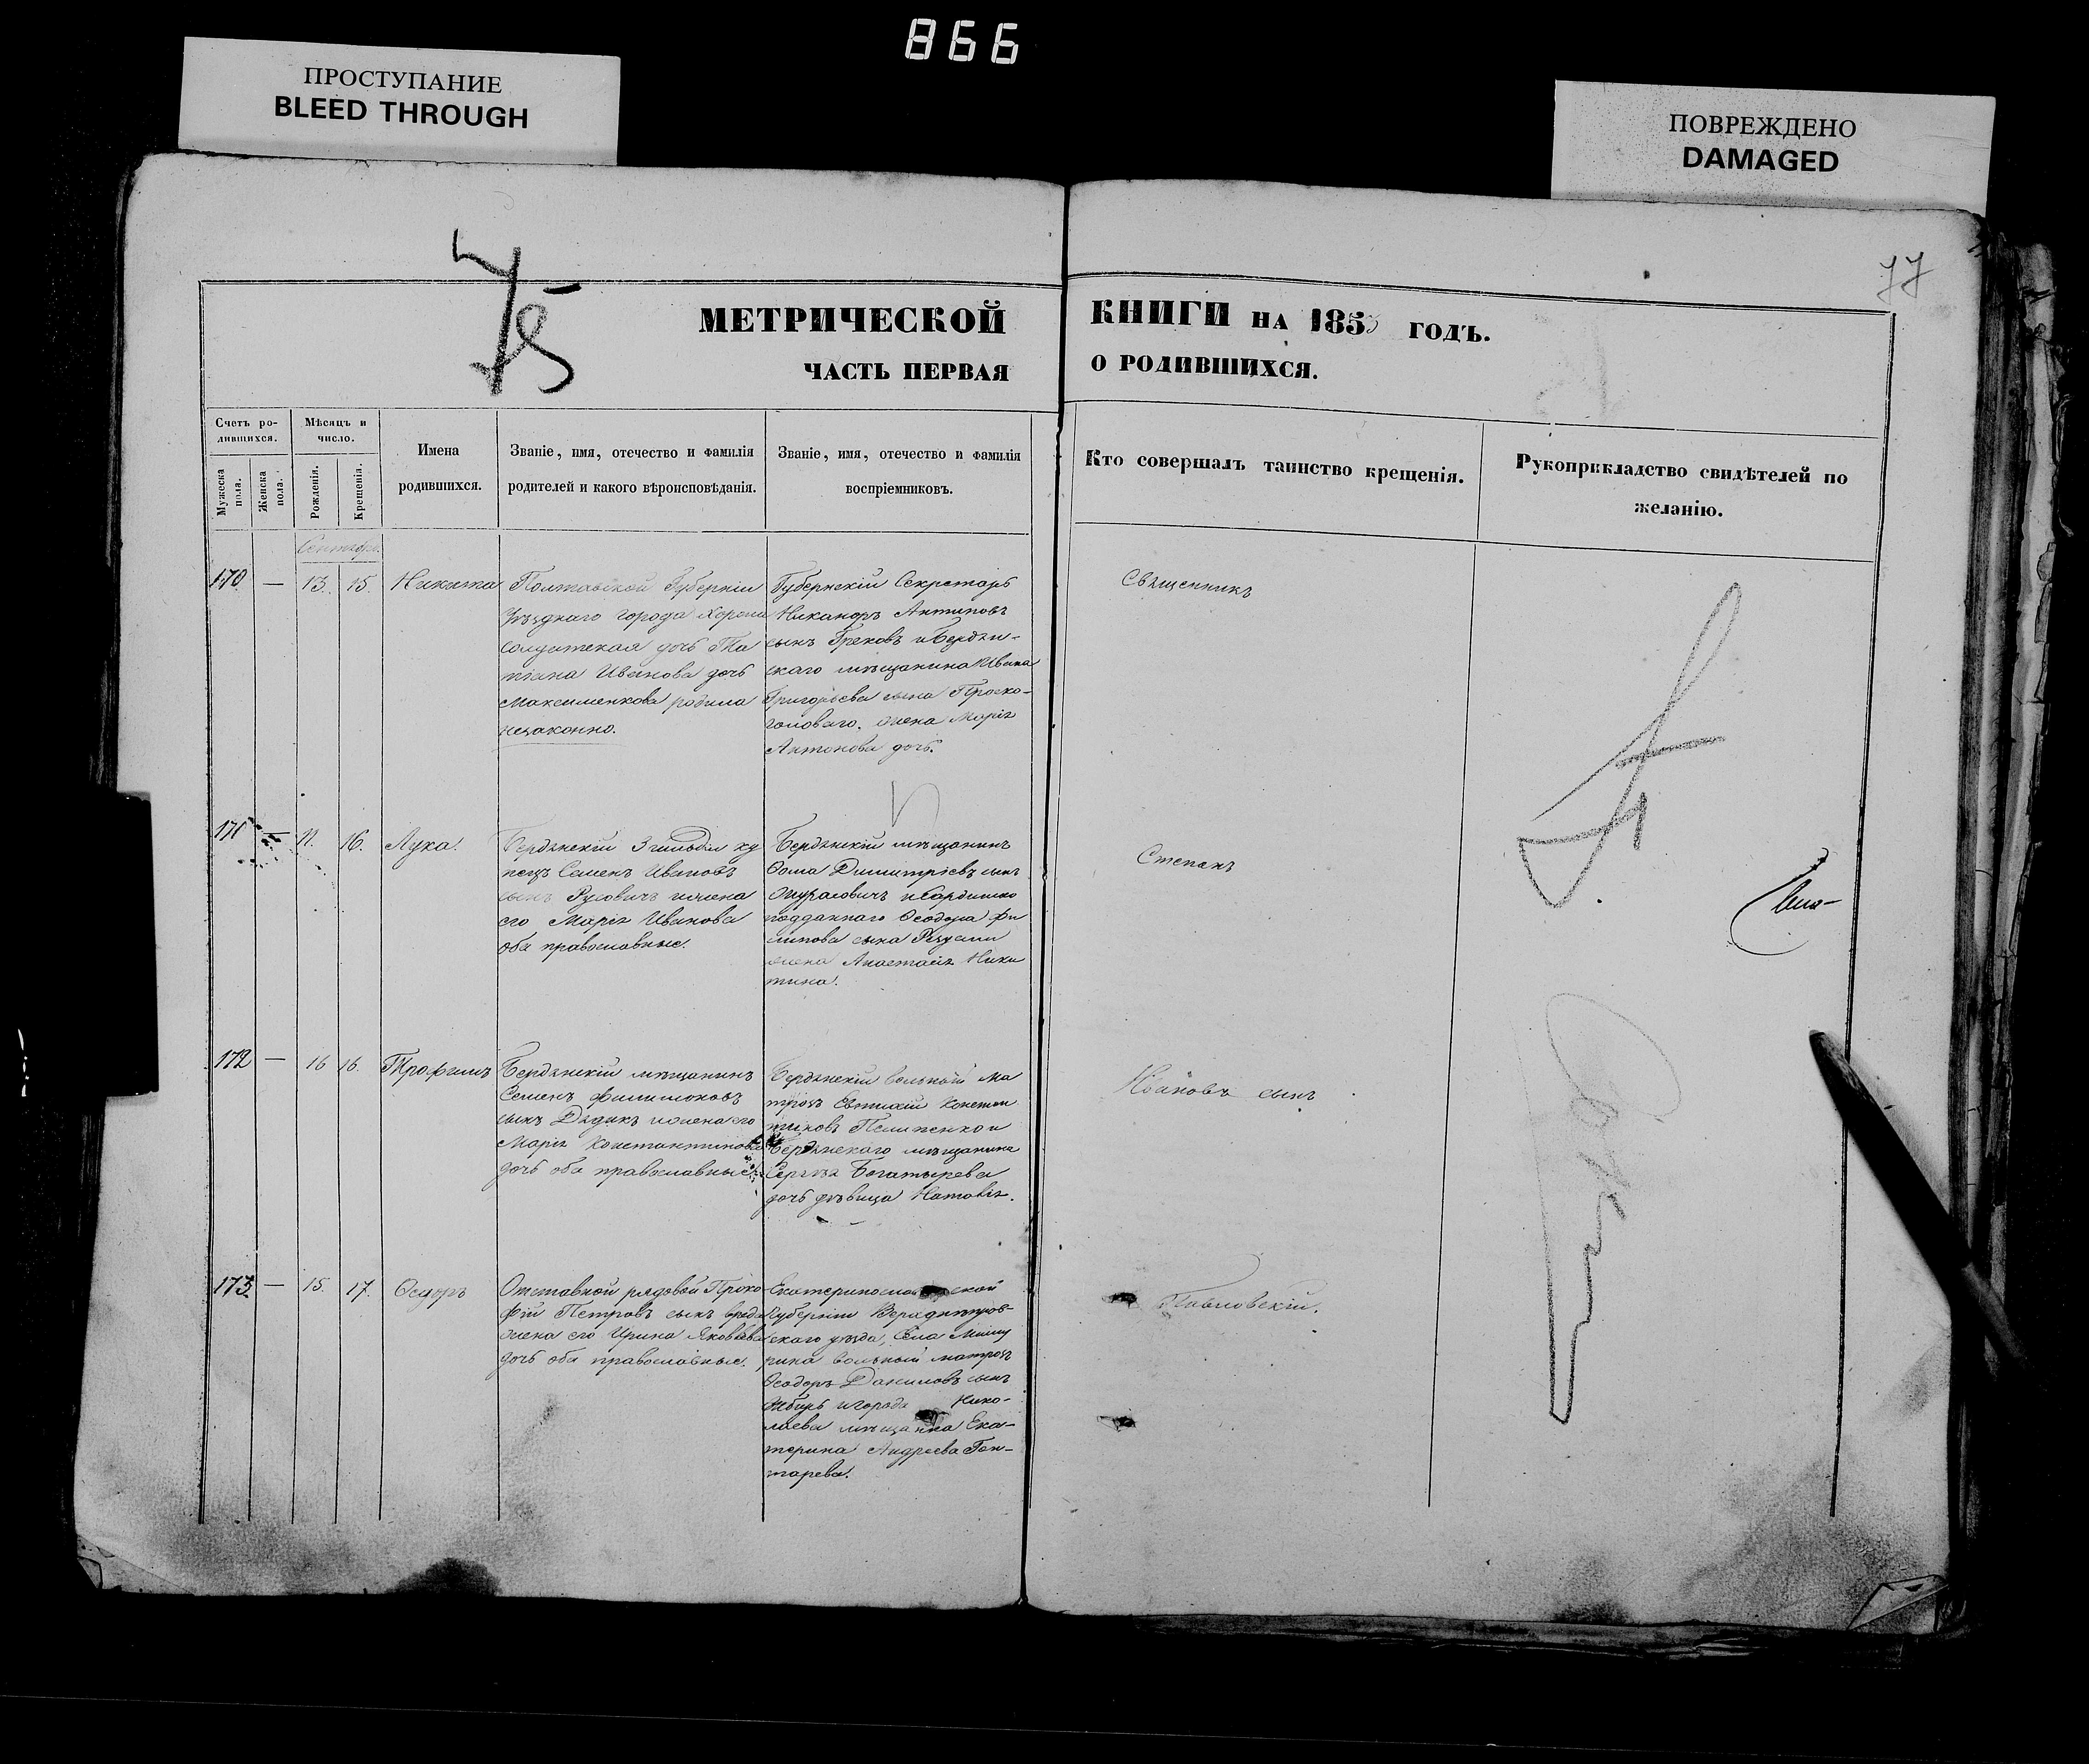 866
ПРОСТУПАНИЕ
BLEED THROUGH
ПОВРЕЖДЕНО
DAMAGED
77
МЕТРИЧЕСКОЙ
ЧАСТЬ ПЕРВАЯ
КНИГИ НА 1853 ГОДЪ.
О РОДИВШИХСЯ.
Счетъ ро-
дившихся.
Мужеска
пола.
Женска
пола.
Мѣсяцъ и
число.
Рожденія.
Крещенія.
Имена
родившихся.
Званіе, имя, отечество и фамилія
родителей и какого вѣроисповѣданія.
Званіе, имя, отечество и фамилія
воспріемниковъ.
Кто совершалъ таинство крещенія.
Рукоприкладство свидѣтелей по
желанію.
Сентябрь
170 — 13. 15. Никита
Полтавской Губерніи
уѣзднаго города
солдатская дочь Та
тіана Иванова дочь
Максименкова родила
незаконно.
Губернскій Секретарь
Никаноръ Антиповъ
сынъ Грековъ и Бердян-
скаго мѣщанина Ивана
Григорьева сына
жена Марія
Антонова дочь.
Священникъ
171 — 11. 16. Лука.
Бердянскій 3 гильдіи ку
пецъ Семенъ Ивановъ
сынъ Русовичъ и жена
его Марія Иванова
оба православные.
Бердянскій мѣщанинъ
Фома Димитріевъ сынъ
подданнаго Феодора Фи
липова сына
жена Анастасія Ники
тина.
Степанъ
172 — 16 16. Трофимъ
Бердянскій мѣщанинъ
Семенъ Филимоновъ
сынъ Дядикъ и жена его
Марія Константинова
дочь оба православные.
Бердянскій вольный ма
трозъ Евтихій Констан
тиновъ Пелипенко и
Бердянскаго мѣщанина
Сергѣя Богатырева
дочь дѣвица Наталія.
Ивановъ сынъ
173. — 15. 17. Федоръ
Отставной рядовой Проко
фій Петровъ сынъ
жена его Ирина Яковлева
дочь оба православные.
Екатеринославской
Губерніи
скаго уѣзда, села
рина вольный матрозъ
Феодоръ Даниловъ сынъ
и города Нико-
лаева мѣщанка Ека-
терина Андреева Гон-
тарева.
Павловскій.